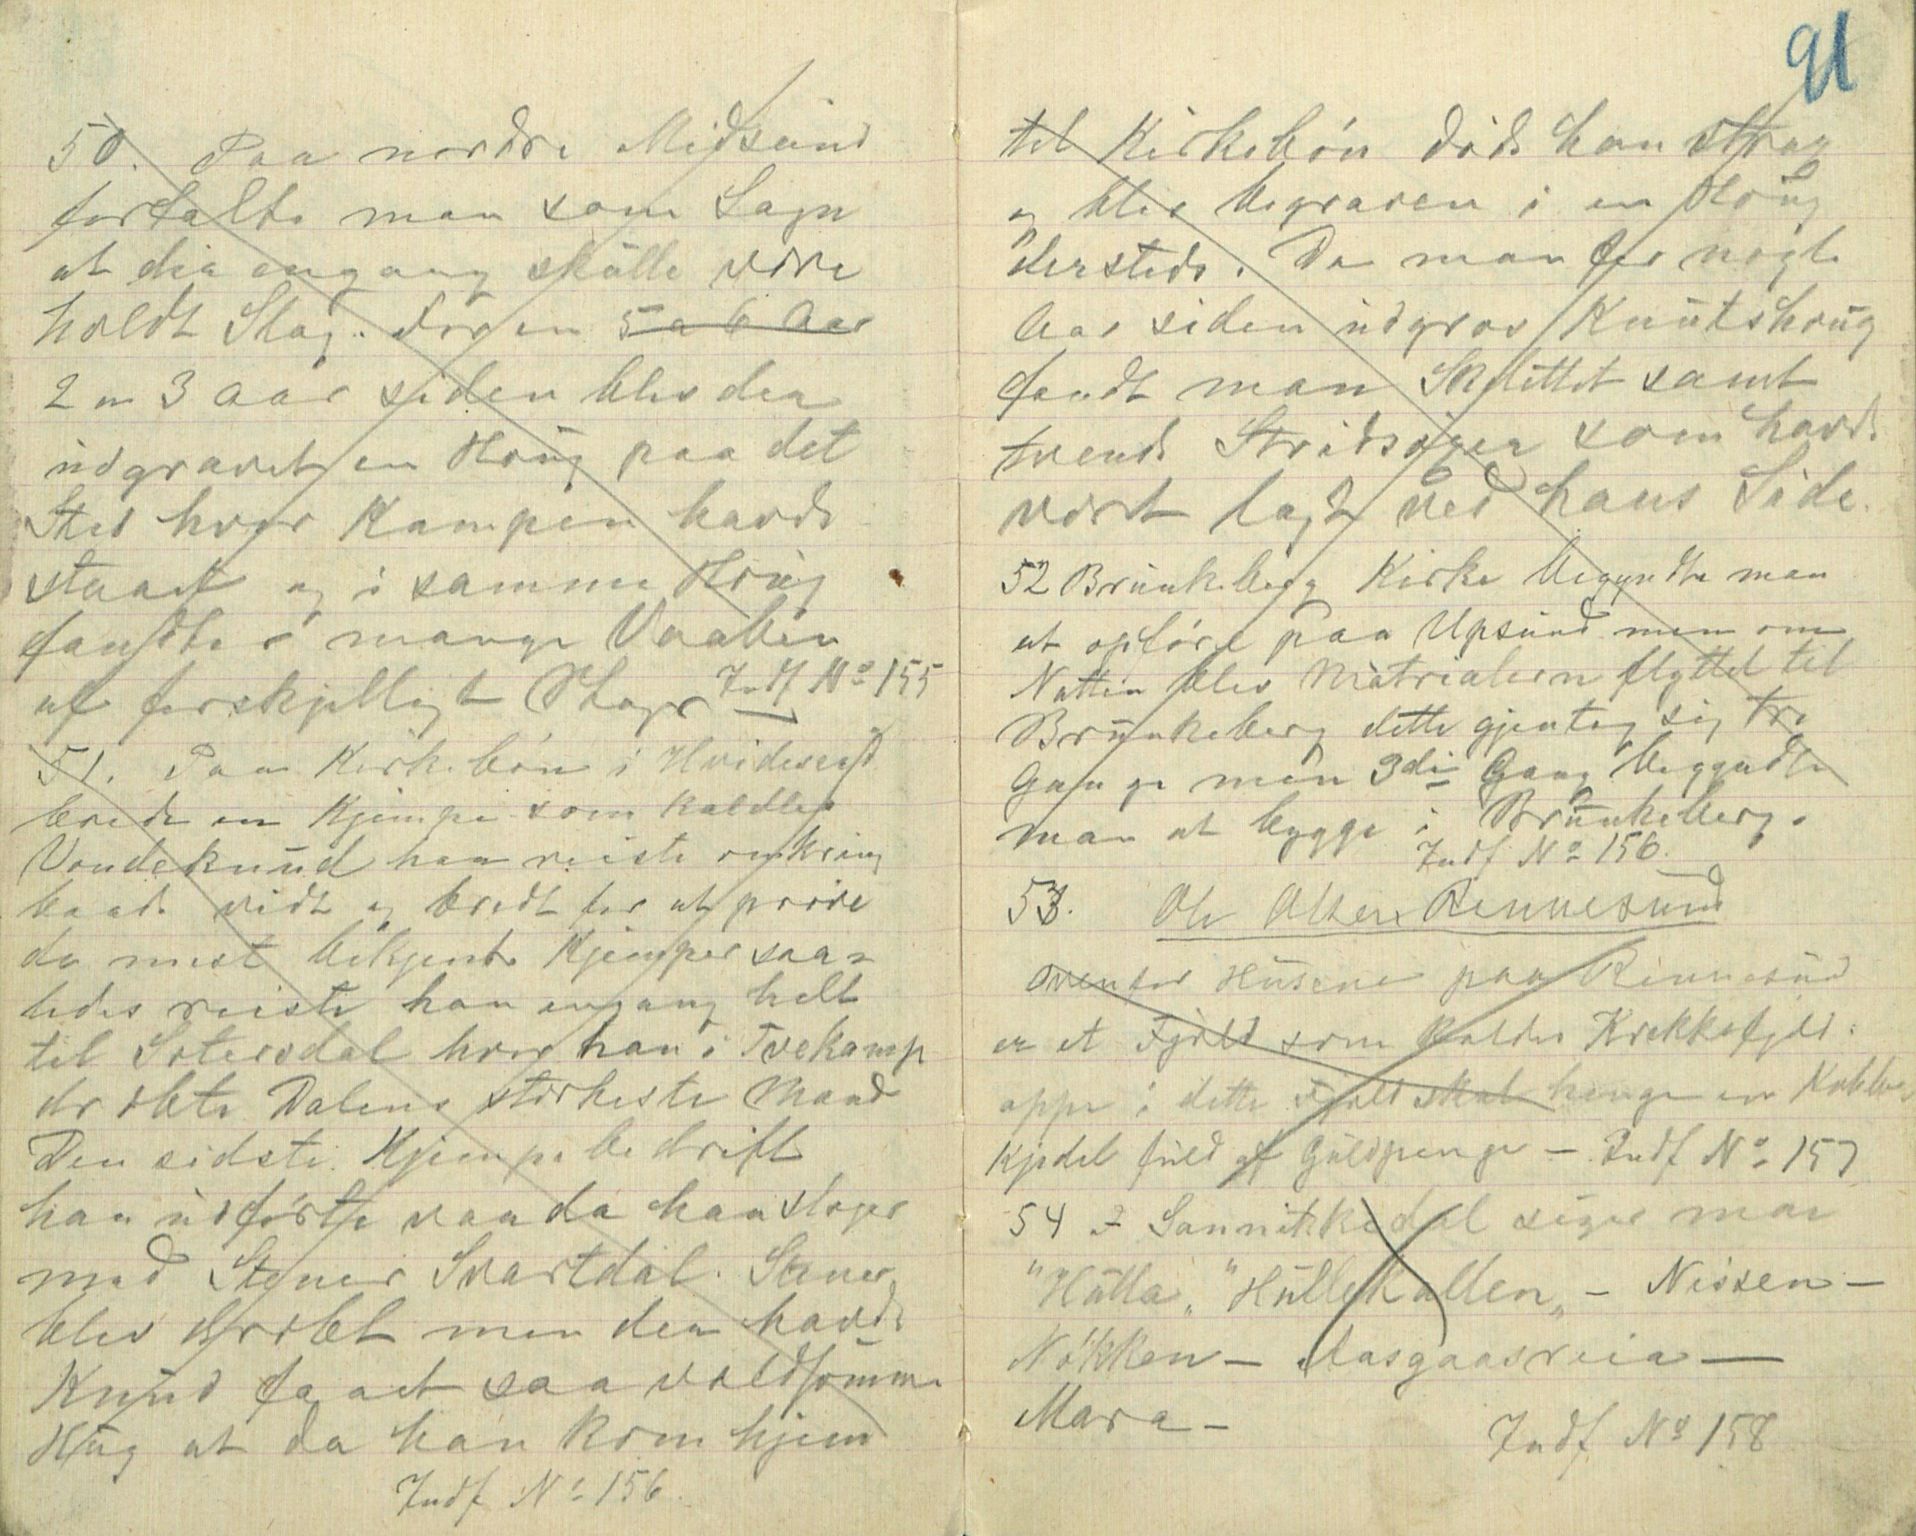 50. Paa nordre Midsund
fortalte man som Sagn
at der engang skulle være
holdt Slag. For en 5 a 6 Aar
2 a 3 Aar siden blev der
udgravet en Houg paa det
Sted hvor Kampen havde
staaet og i samme Houg
fandtes mange Vaaben
af forskjelligt Slags Indf No 155
51. Paa Kirkebön i Hvideseid
boede en Kjempe som kaldtes
Vondeknud han reiste omkring
baade vidt og bredt for at pröve
de mest bekjente Kjemper saa-
ledes reiste han engang helt
til Sætersdal hvor han i Tvekamp
dræbte Dalens stærkeste Mand
Den sidste Kjempebedrift
han udförte var da han sloges
med Stener Svartdal. Stener
blev dræbt men da havde
Knud faaet saa voldsomme
Hug at da han kom hjem
Indf No 156
91
til Kirkebön döde han strax
og blev begraven i en Houg
dersteds. Da man for nogle
Aar siden udgrov Knutshoug
fandt man Skelettet samt
tvende Stridsöxer som havde
vært lagt ved hans Side.
52 Brunkeberg Kirke begyndte man
at opföre paa Upsund men om
Natten blev Matrialern flyttet til
Brunkeberg dette gjentog sig tre
Gange men 3die Gang begyndte
man at bygge i Brunkeberg.
Indf No 156.
53. Ole Olsen Rennesund
ovenfor Husene paa Rennesund
er et Fjæld som kaldes Krekkefjeld
oppe i dette Fjæld skal henge en Kobber
Kjedel fuld af Guldpenge — Indf No 157
54 I Sannikkedal siger man
"Hulla" "Hullekallen" — Nissen —
Nökken — Aasgaasreia —
Mara —
Indf No 158